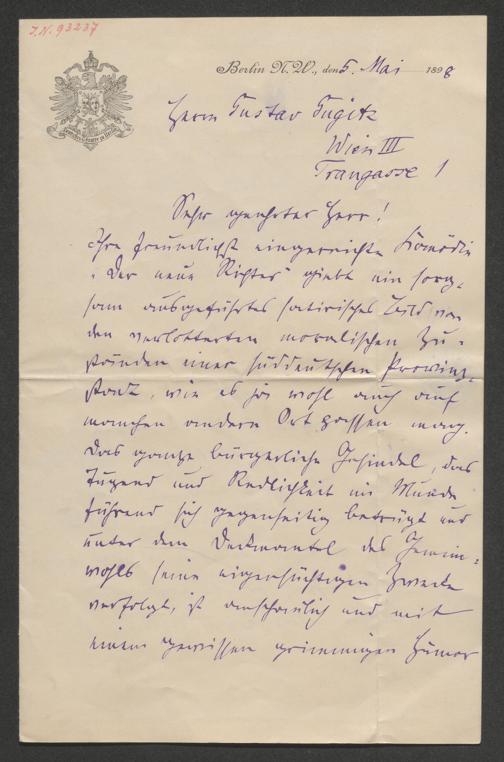 I.N. 93237
Berlin N.W., den 5. Mai 1898
Herrn Gustav Gugitz
Wien III
Traungasse 1
Sehr geehrter Herr!
Ihre freundlichst eingereichte Komödie
"Der neue Richter" giebt ein sorg-
sam ausgeführtes satirisches Bild von
den verlotterten moralischen Zu-
ständen einer süddeutschen Provinz-
stadt, wie es ja wohl auch auf
manchen andern Ort passen mag.
Das ganze bürgerliche Gesindel, das
Tugend und Redlichkeit im Munde
führend sich gegenseitig betrügt und
unter dem Deckmantel des Gemein-
wohls seine eigensüchtigen Zwecke
verfolgt, ist anschaulich und mit
einem gewissen grimmigen Humor